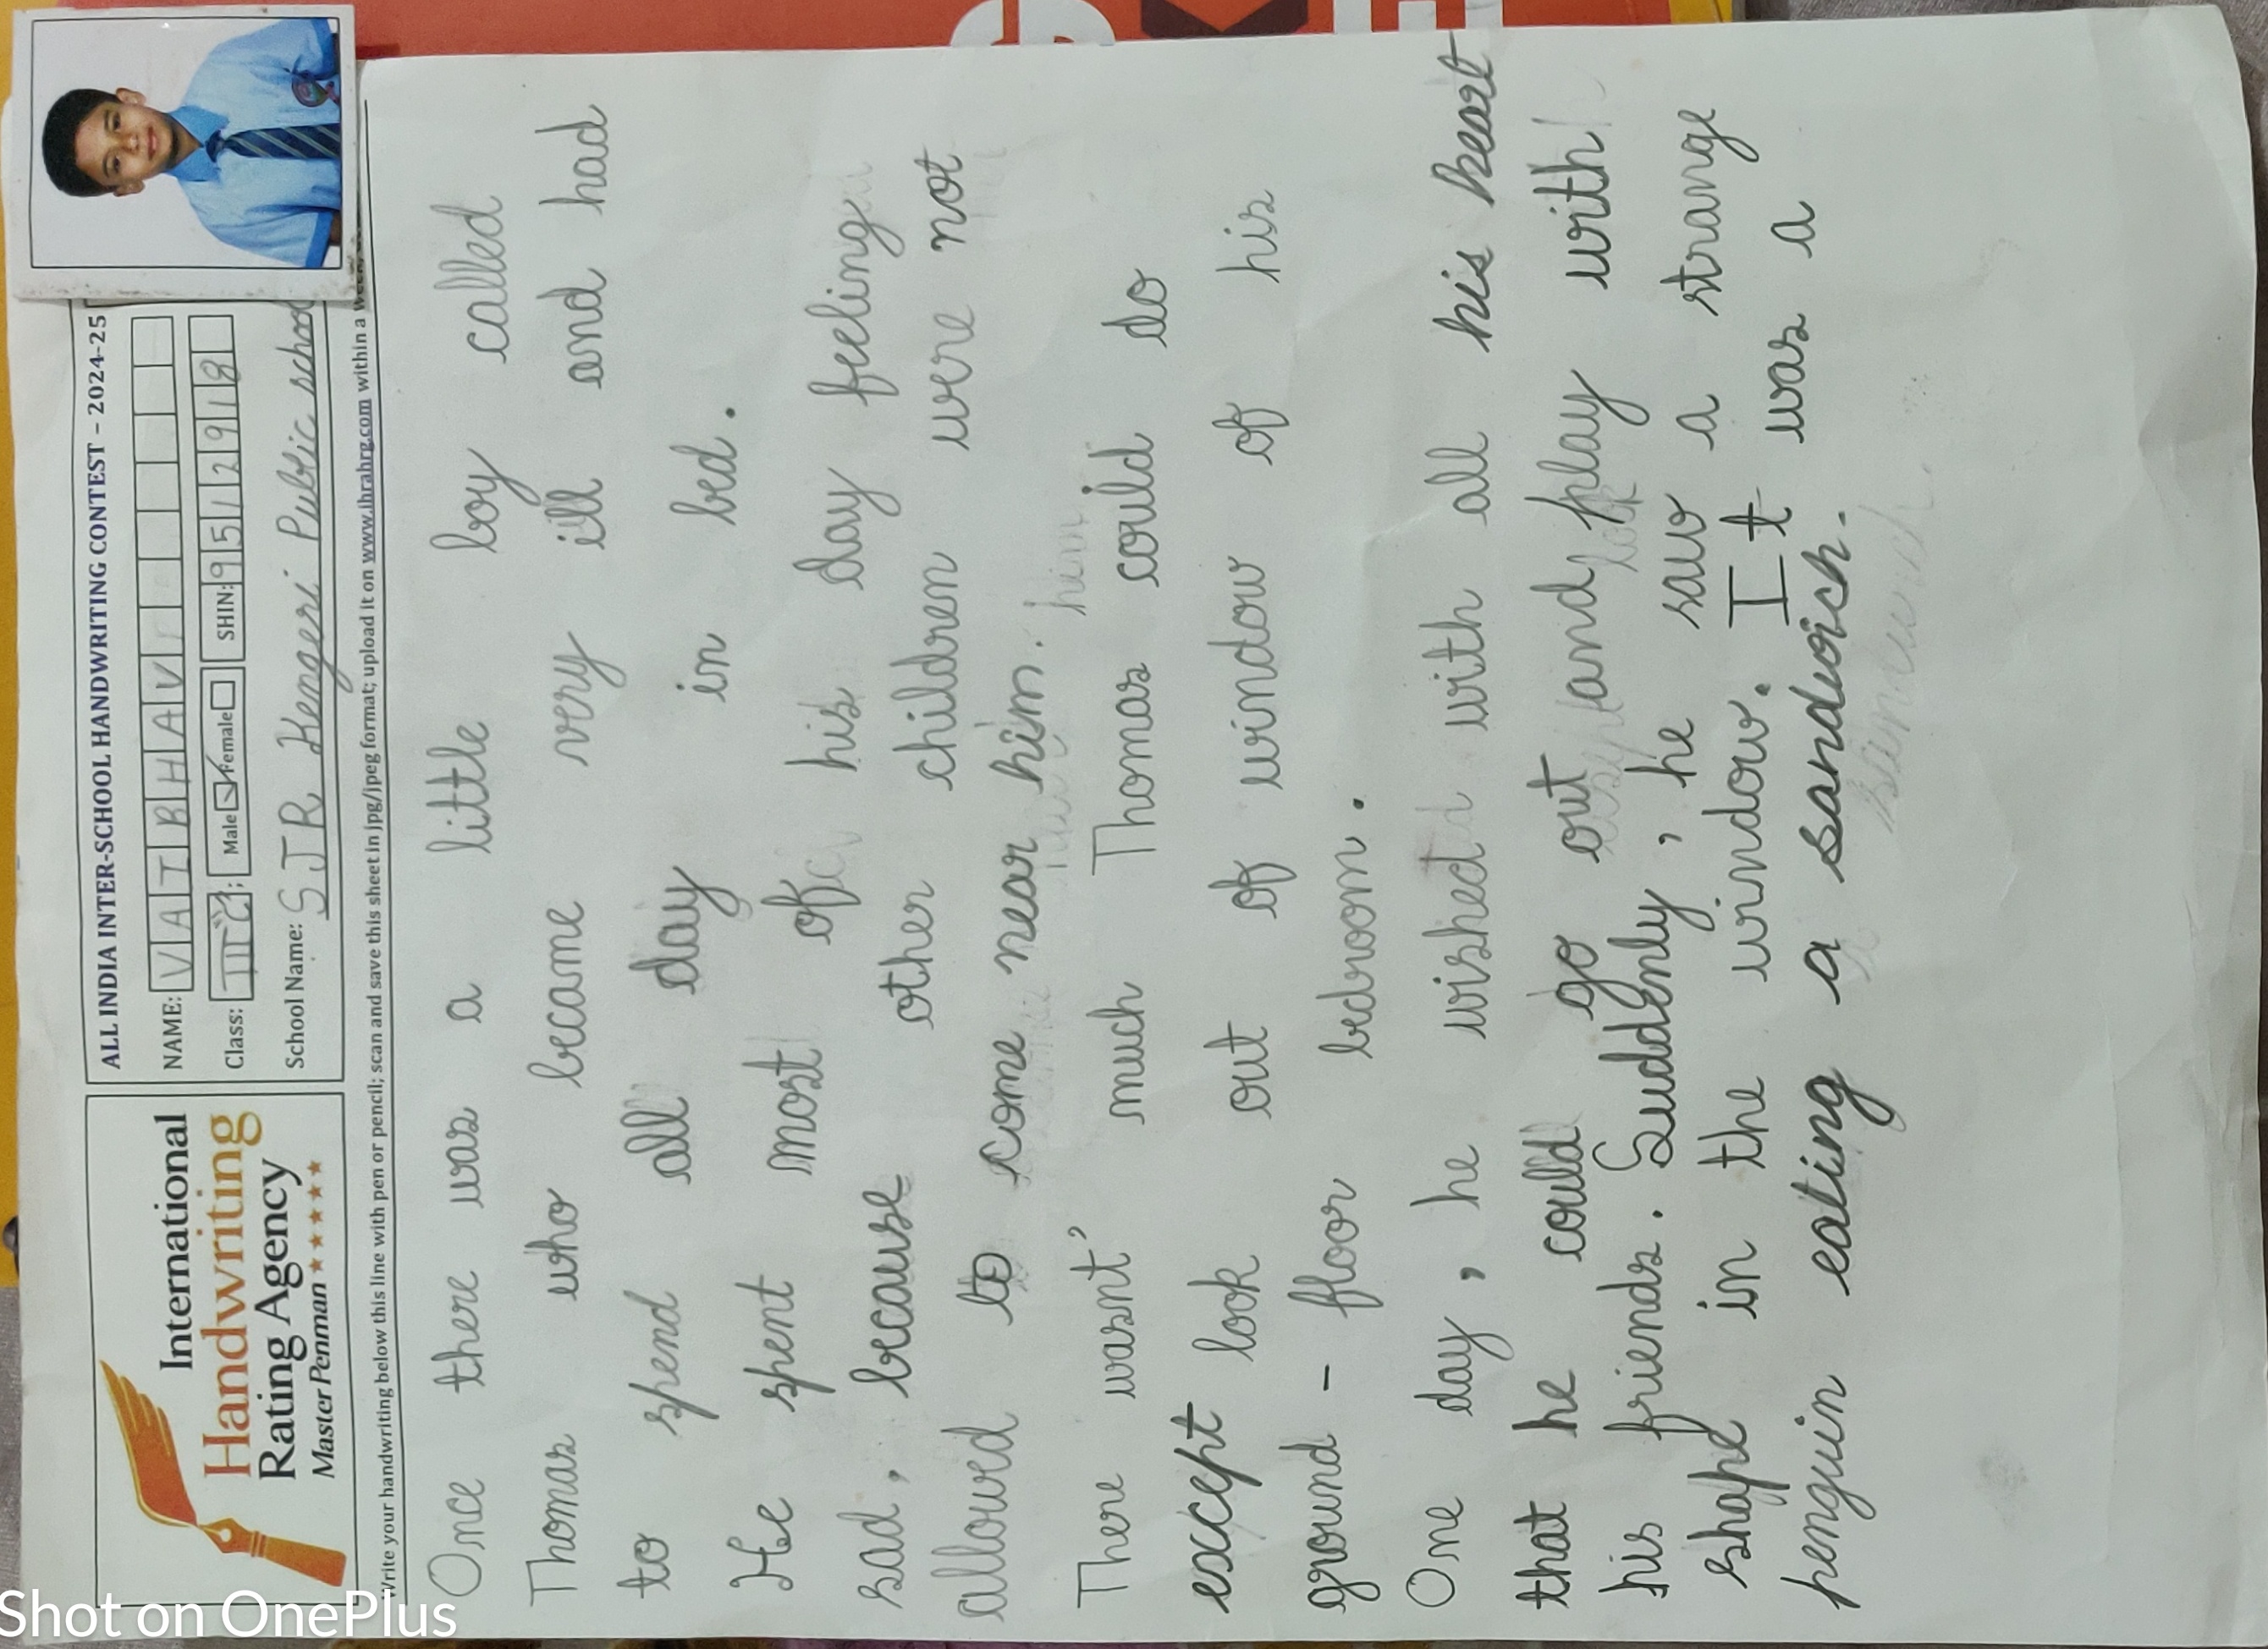 International
Handwriting
Rating Agency
Master Penman ★★★★★★
ALL INDIA INTER-SCHOOL HANDWRITING CONTEST – 2024-25
NAME: VAIBHAV
Class: III "C"; Male ☑ Female ☐ SHIN: 9512918
School Name: SJR Kengeri Public school
Write your handwriting below this line with pen or pencil; scan and save this sheet in jpg/jpeg format; upload it on www.ihrahrg.com within a
Once there was a little boy called
Thomas who became very ill and had
to spend all day in bed.
He spent most of his day feeling
sad, because other children were not
allowed to come near him.
There wasnt' much Thomas could do
except look out of window of his
ground - floor bedroom.
One day, he wished with all his heart
that he could go out and play with
his friends. Suddenly, he saw a strange
shape in the window. It was a
penguin eating a sandwich.
Shot on OnePlus